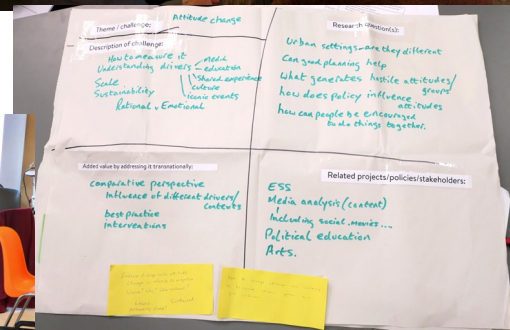 Theme / challenge:
Attitude change
Description of challenge:
How to measure it
Understanding drivers
media
education
Shared experience
culture
iconic events
Scale
Sustainability
Rational v Emotional
Research question(s):
Urban settings - are they different
Can good planning help
What generates hostile attitudes/
groups
how does policy influence
attitudes
how can people be encouraged
to do things together.
Added value by addressing it transnationally:
comparative perspective
Influence of different drivers/
contexts
best practice
interventions
Related projects/policies/stakeholders:
ESS
Media analysis (content)
Including social, movies...
Political education
Arts.